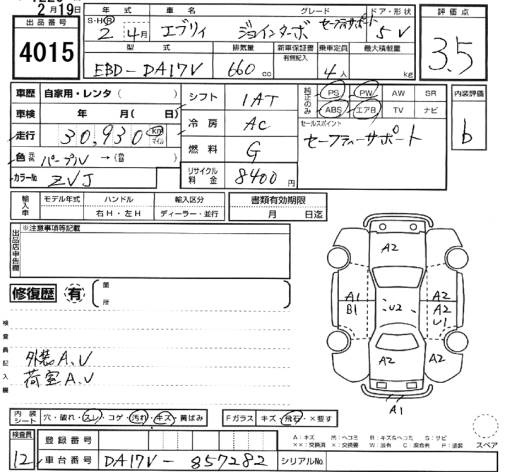 2月19日
出品番号
4015
年式 車名 グレード ドア・形状 評価点
S・H・R 2年4月 エブリイ ジョインターボ セーフティサポート 5V 3.5
型式 排気量 新車保証書 乗車定員 最大積載量
有無記入
EBD-DA17V 660cc 4人 kg
車歴 自家用・レンタ( )
車検 年 月(日)
走行 30,930 Km マイル
色 元色 パープル → (色替 )
カラーNo ZVJ
シフト 1AT
冷房 AC
燃料 G
リサイクル料金 8400円
純正のみ PS PW AW SR
ABS エアB TV ナビ
セールスポイント
セーフティーサポート
内装評価
b
輸入車 モデル年式 ハンドル 輸入区分
右H・左H ディーラー・並行
書類有効期限
月 日迄
出品店申告欄 ※注意事項等記載
修復歴 有 箇所
検査員記入欄
外装A.U
荷室A.U
A2
A1
B1
U2
A2
A2
U1
A2
A2
A1
内装シート 穴・破れ・スレ・コゲ・汚れ・キズ・黄ばみ
Fガラス キズ・飛石・×要す
A:キズ B:キズ&ヘコミ S:サビ
スペア
検査員
12
登録番号
車台番号 DA17V-857282 シリアルNo